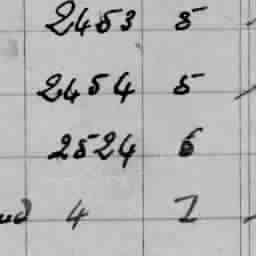 2453 5
2454 5
2524 6
4 I